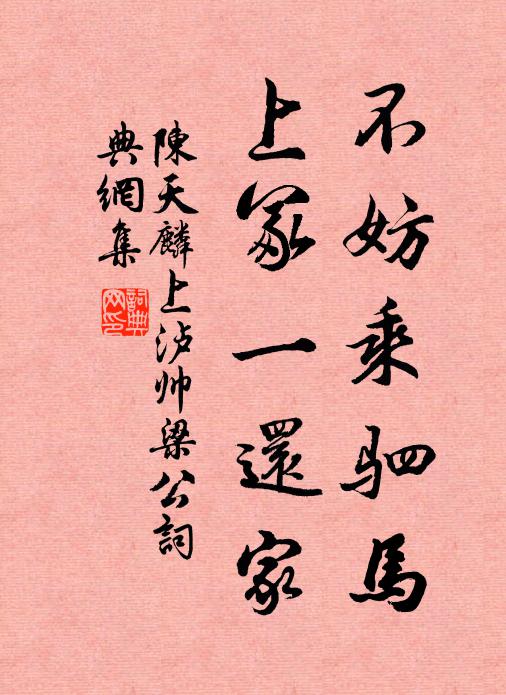 不妨乘驷馬
上冢一還家
陳天麟上泸帅梁公詞
典網集
詞典网印